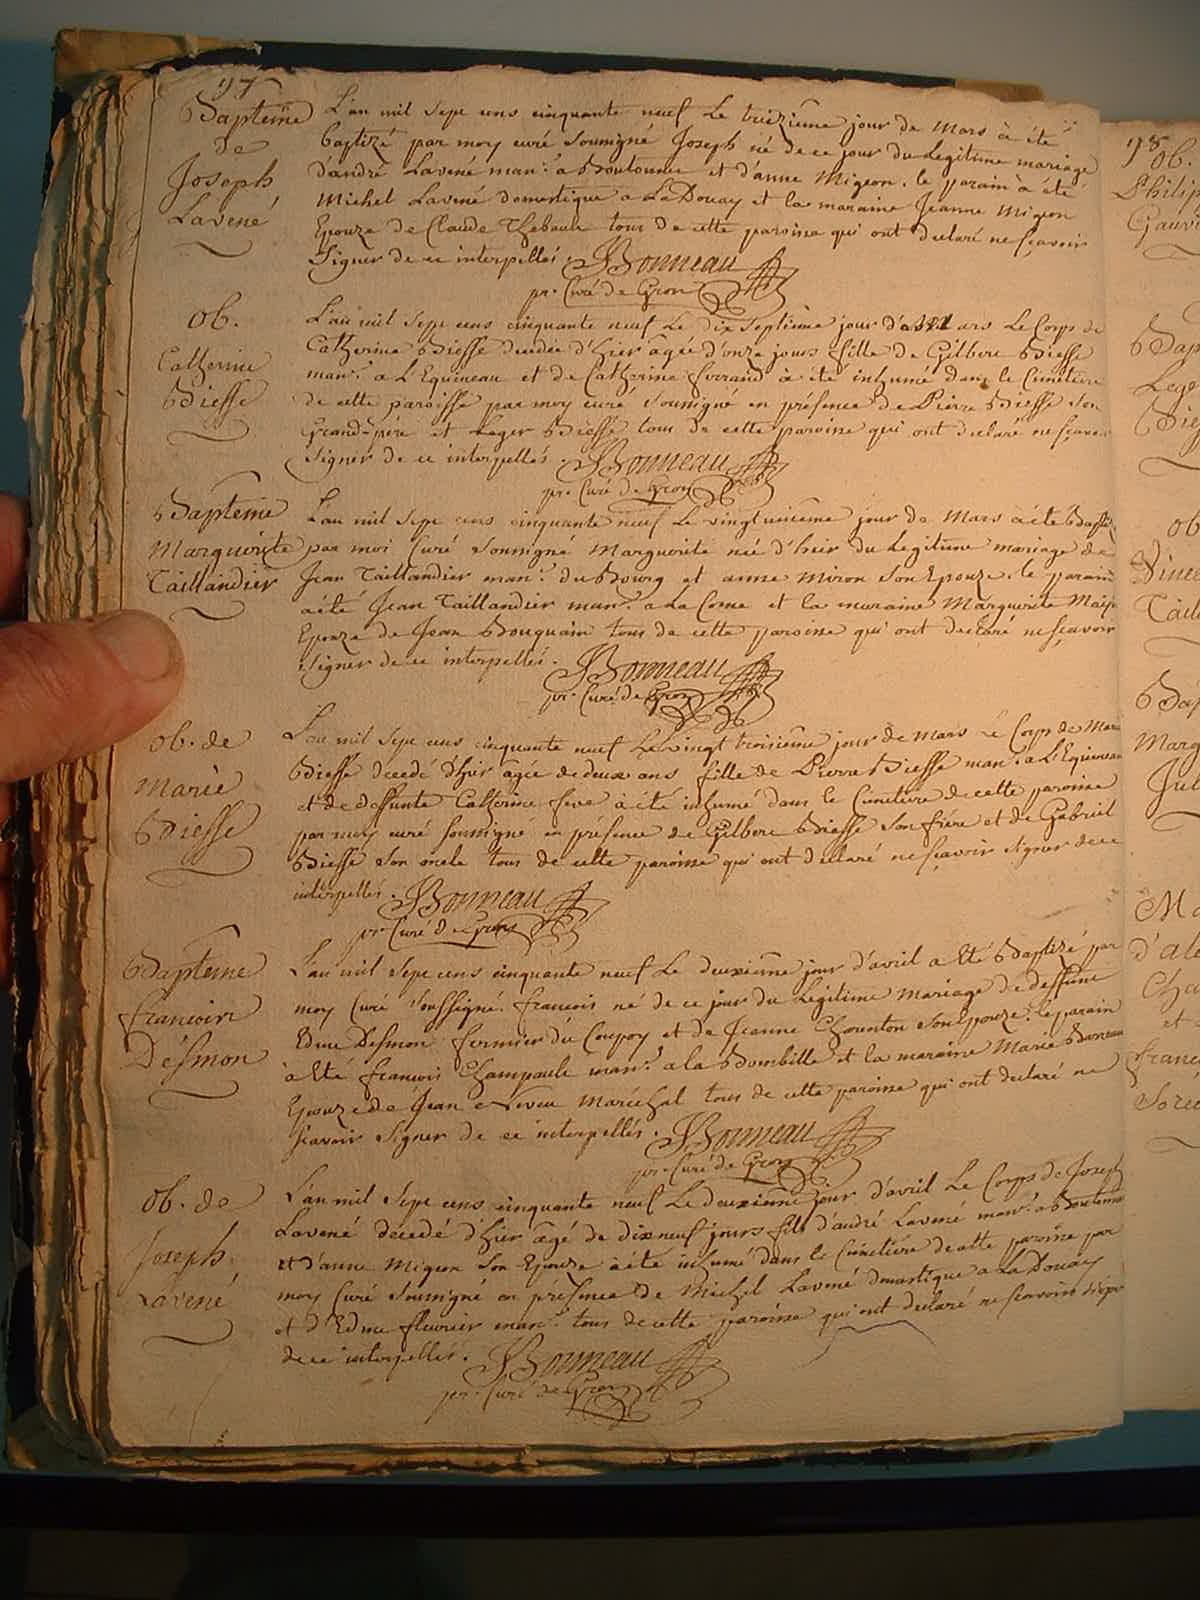 97
Baptême
de
Joseph
Lavené
L'an mil sept cens cinquante neuf Le treizieme jour de Mars à été
baptizé par moy curé soussigné Joseph né de ce jour du Legitime mariage
d'andré Lavené man.^e a Boutonnee et d'anne Migeon. le parain à été
Michel Lavené domestique a La Douay et la maraine Jeanne Migeon
Epouze de Claude Thebault tous de cette paroisse qui ont declaré ne sçavoir
signer de ce interpellés. Bonneau
pr. Curé de Gron
ob.
Catherine
Biesse
L'an mil sept cens cinquante neuf Le dix Septieme jour de Mars Le Corps de
Catherine Biesse decedée d'hier agée d'onze jours fille de Gilbert Biesse
man.^e a L'Equineau et de Catherine ferrand à été inhumé dans le Cimetiere
de cette paroisse par moy curé soussigné en présence de Pierre Biesse son
Grand-pere et Leger Biesse tous de cette paroisse qui ont declaré ne sçavoir
signer de ce interpellés. Bonneau
pr. Curé de Gron
Baptême
Marguerite
Taillandier
L'an mil sept cens cinquante neuf Le jour de Mars à été Baptisé
par moi Curé soussigné Marguerite née d'hier du Legitime mariage de
Jean Taillandier man.^e du Bourg et anne Miron son Epouze. le parain
à été Jean Taillandier man.^e a la Corne et la maraine Marguerite
Epouze de Jean Bouquain tous de cette paroisse qui ont declaré ne sçavoir
signer de ce interpellés. Bonneau
pr. Curé de Gron
ob. de
Marie
Biesse
L'an mil sept cens cinquante neuf Le vingt troisieme jour de Mars Le Corps de Marie
Biesse decedé d'hier agée de deux ans fille de Pierre Biesse man. a L'Equineau
et de deffunte Catherine feve à été inhumé dans le Cimetiere de cette paroisse
par moy curé soussigné en présence de Gilbert Biesse son frére et de Gabriel
Biesse son oncle tous de cette paroisse qui ont declaré ne sçavoir signer de ce
interpellés. Bonneau
pr. Curé de Gron
Baptême
francois
Désmon
L'an mil sept cens cinquante neuf Le deuxieme jour d'avril a été Baptizé par
moy Curé soussigné. francois né de ce jour du Legitime mariage de deffunt
Edme Desmon fermier du Coupoy et de Jeanne Chounton son Epouze. le parain
à été francois Champault man.^e a la Bombille et la maraine Marie
Epouze de Jean Neveu Maréchal tous de cette paroisse qui ont declaré ne
sçavoir signer de ce interpellés. Bonneau
pr. Curé de Gron
ob. de
Joseph
Lavené
L'an mil sept cens cinquante neuf Le deuxieme jour d'avril Le Corps de Joseph
Lavené decedé d'hier agé de dix neuf jours fils d'andré Lavené man.^e a Boutonnee
et d'anne Migeon son Epouze à été inhumé dans le Cimetiere de cette paroisse par
moy Curé soussigné en présence de Michel Lavené domestique a La Douay
et d'Edme fleurier man.^e tous de cette paroisse qui ont declaré ne sçavoir signer
de ce interpellés. Bonneau
pr. Curé de Gron
98
ob.